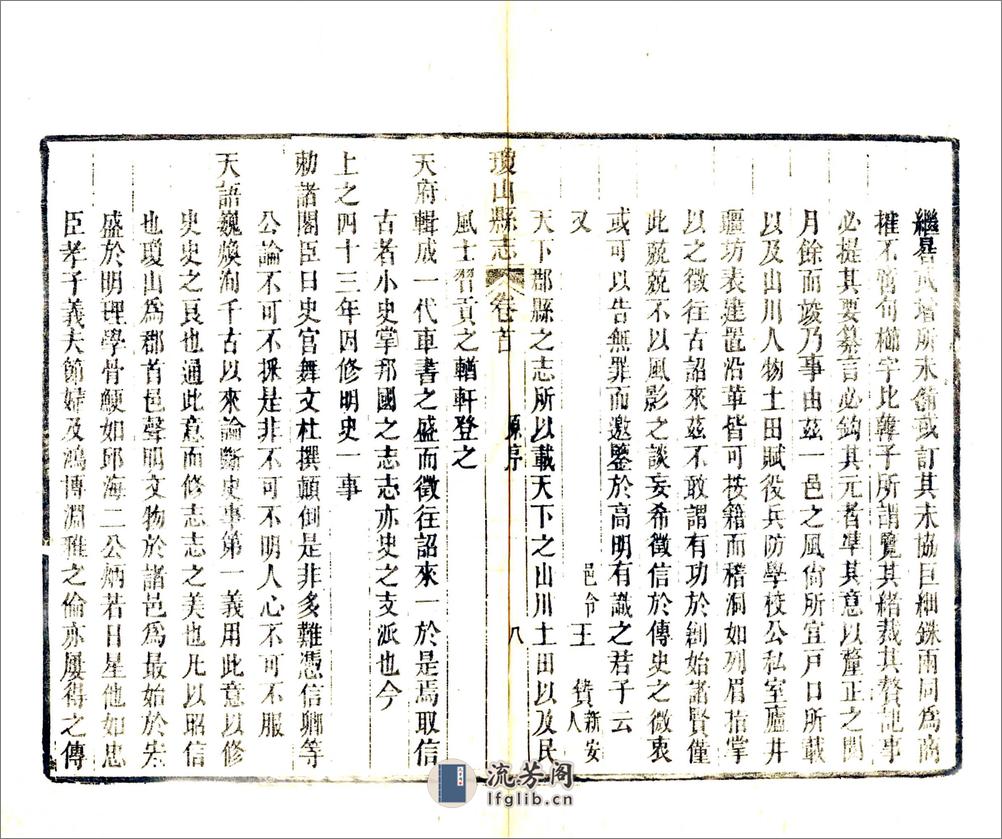 繼晷以增所未備或訂其未協巨細銖兩同為商
榷不窮句櫛字比韓子所謂覽其緒裁其贅記事
必提其要纂言必鈎其元者準其意以釐正之閱
月餘而竣乃事由茲一邑之風尚所宜戶口所載
以及山川人物土田賦役兵防學校公私室廬井
疆坊表建置沿革皆可按籍而稽洞如列眉指掌
以之徵往古詔來茲不敢謂有功於創始諸賢僅
此兢兢不以風影之談妄希徵信於傳史之微衷
或可以告無罪而邀鑒於高明有識之君子云
又 邑令王 贄 新安人
天下郡縣之志所以載天下之山川土田以及民
瓊山縣志 卷首 原序 八
風土習貢之輶軒登之
天府輯成一代車書之盛而徵往詔來一於是焉取信
古者小史掌邦國之志志亦史之支派也今
上之四十三年因修明史一事
勅諸閣臣曰史官舞文杜撰顛倒是非多難憑信卿等
公論不可不採是非不可不明人心不可不服
天語巍煥洵千古以來論斷史事第一義用此意以修
史史之良也通此意而修志志之美也凡以昭信
也瓊山為郡首邑聲明文物於諸邑為最始於宋
盛於明理學骨鯁如邱海二公炳若日星他如忠
臣孝子義夫節婦及鴻博淵雅之倫亦屢得之傳
流芳阁
lfglib.cn